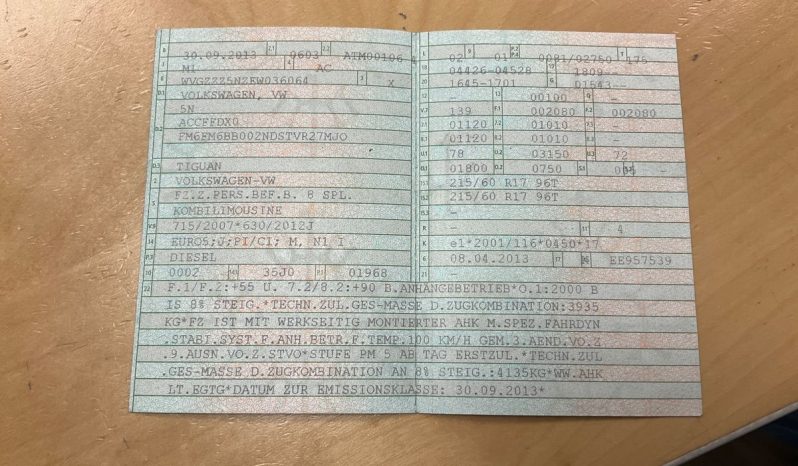 B 30.09.2013 2.1 0603 2.2 ATM00106 4
J M1 4 AC
E WVGZZZ5NZEW036064 3 X
D.1 VOLKSWAGEN, VW
5N
D.2 ACCFFDX0
FM6FM6BB002NDSTVR27MJO
D.3 TIGUAN
2 VOLKSWAGEN-VW
5 FZ.Z.PERS.BEF.B. 8 SPL.
KOMBILIMOUSINE
V.9 715/2007*630/2012J
14 EURO5;J;PI/CI; M, N1 I
P.3 DIESEL
10 0002 14.1 35J0 P.1 01968
L 02 9 01 P.2 P.4 0081/02750 T 175
18 04426-04528 19 1809--
20 1645-1701 G 01543--
12 - 13 00100 Q -
V.7 139 F.1 002080 F.2 002080
7.1 01120 7.2 01010 7.3 -
8.1 01120 8.2 01010 8.3 -
U.1 78 U.2 03150 U.3 72
O.1 01800 O.2 0750 S.1 005 S.2 -
15.1 215/60 R17 96T
15.2 215/60 R17 96T
15.3 -
R - 11 4
K e1*2001/116*0450*17
6 08.04.2013 17 16 EE957539
21 -
22 F.1/F.2:+55 U. 7.2/8.2:+90 B.ANHÄNGEBETRIEB*O.1:2000 B
IS 8% STEIG.*TECHN.ZUL.GES-MASSE D.ZUGKOMBINATION:3935
KG*FZ IST MIT WERKSEITIG MONTIERTER AHK M.SPEZ.FAHRDYN
.STABI.SYST.F.ANH.BETR.F.TEMP.100 KM/H GEM.3.AEND.VO.Z
.9.AUSN.VO.Z.STVO*STUFE PM 5 AB TAG ERSTZUL.*TECHN.ZUL
.GES-MASSE D.ZUGKOMBINATION AN 8% STEIG.:4135KG*WW.AHK
LT.EGTG*DATUM ZUR EMISSIONSKLASSE: 30.09.2013*